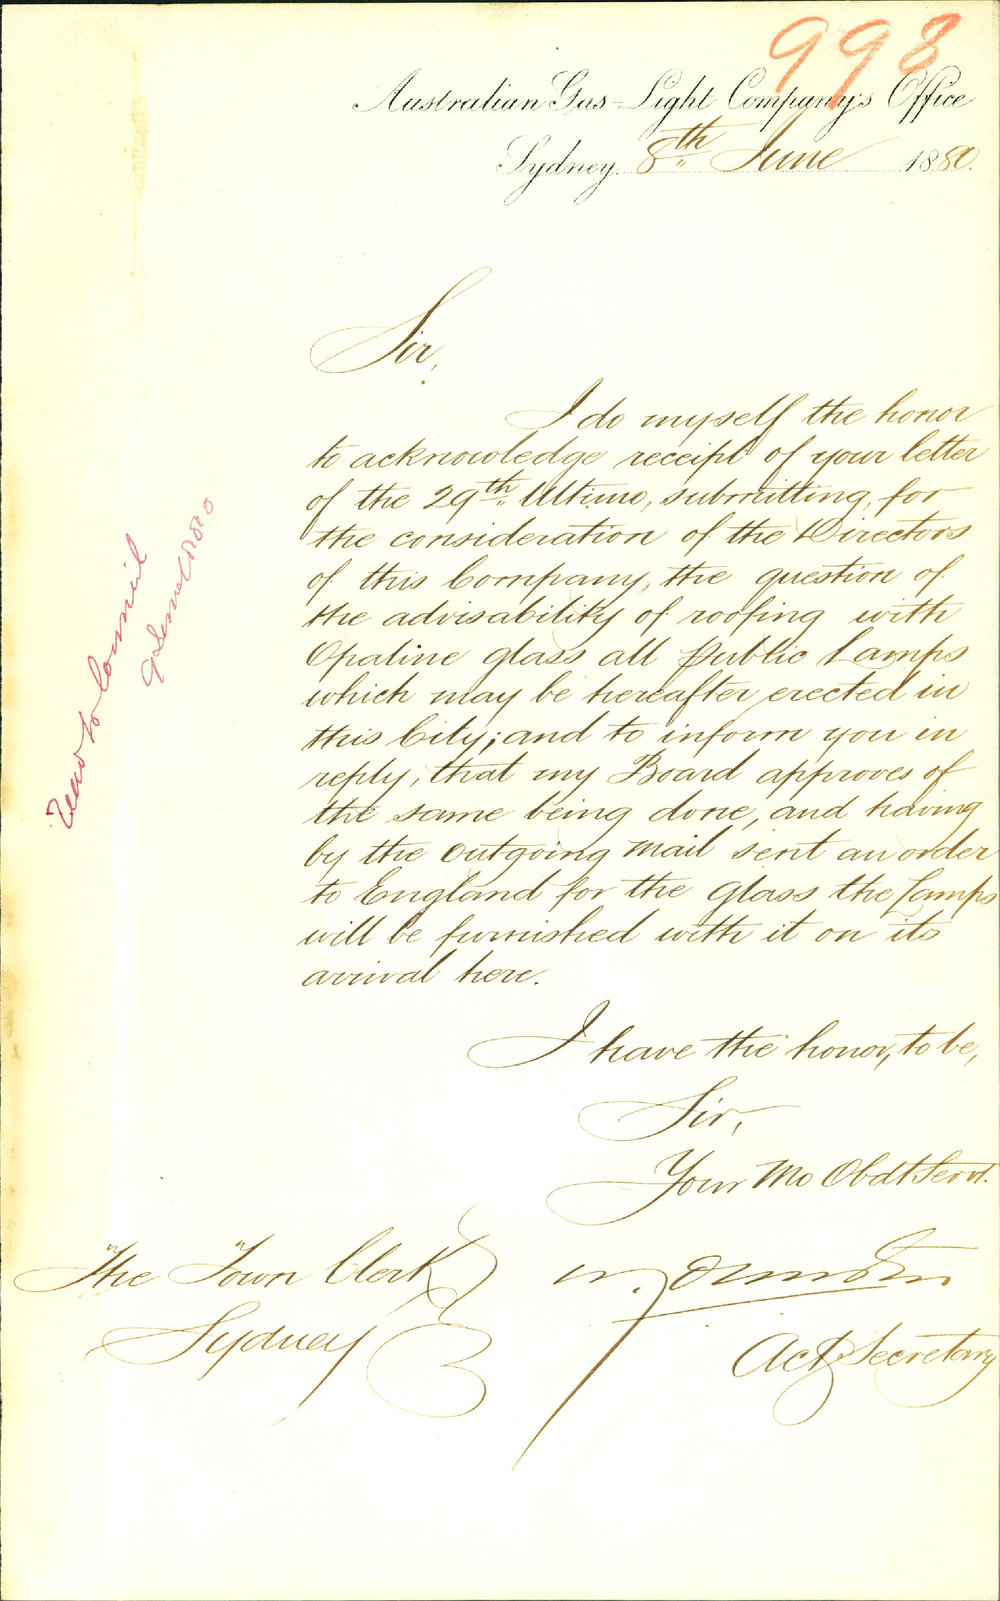 998
Australian Gas-Light Company's Office
Sydney. 8th June 1880.
Sir,
I do myself the honor
to acknowledge receipt of your letter
of the 29th Ultimo, submitting, for
the consideration of the Directors
of this Company, the question of
the advisability of roofing with
Opaline glass all Public Lamps
which may be hereafter erected in
this City; and to inform you in
reply, that my Board approves of
the same being done, and having
by the outgoing mail sent an order
to England for the glass the Lamps
will be furnished with it on its
arrival here.
I have the honor, to be,
Sir,
Your Mo Obdt Servt.
The Town Clerk
Sydney
Actg Secretary
Read to Council
9 June 1880